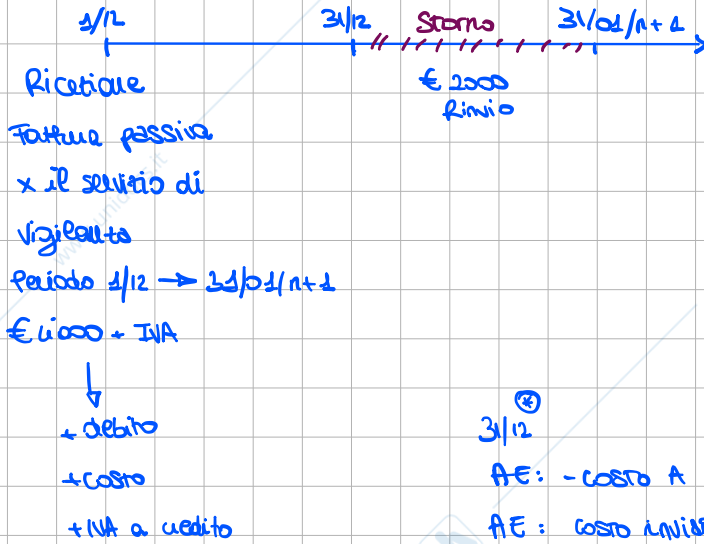 1/12 31/12 Storno 31/01/n+1
€ 2000
Rinvio
Ricezione
Fattura passiva
x il servizio di
vigilanza
Periodo 1/12 → 31/01/n+1
€ 4000 + IVA
+ debito
+ costo
+ IVA a credito
*
31/12
AE: - costo A
AE: costo invia